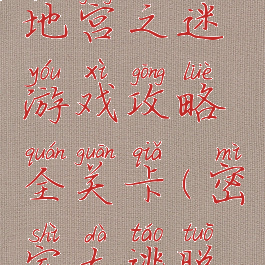 地宫之迷
yóu xì gōng lüè
游戏攻略
quán guān qiǎ mì
全关卡(密
shì dà táo tuō
室大逃脱